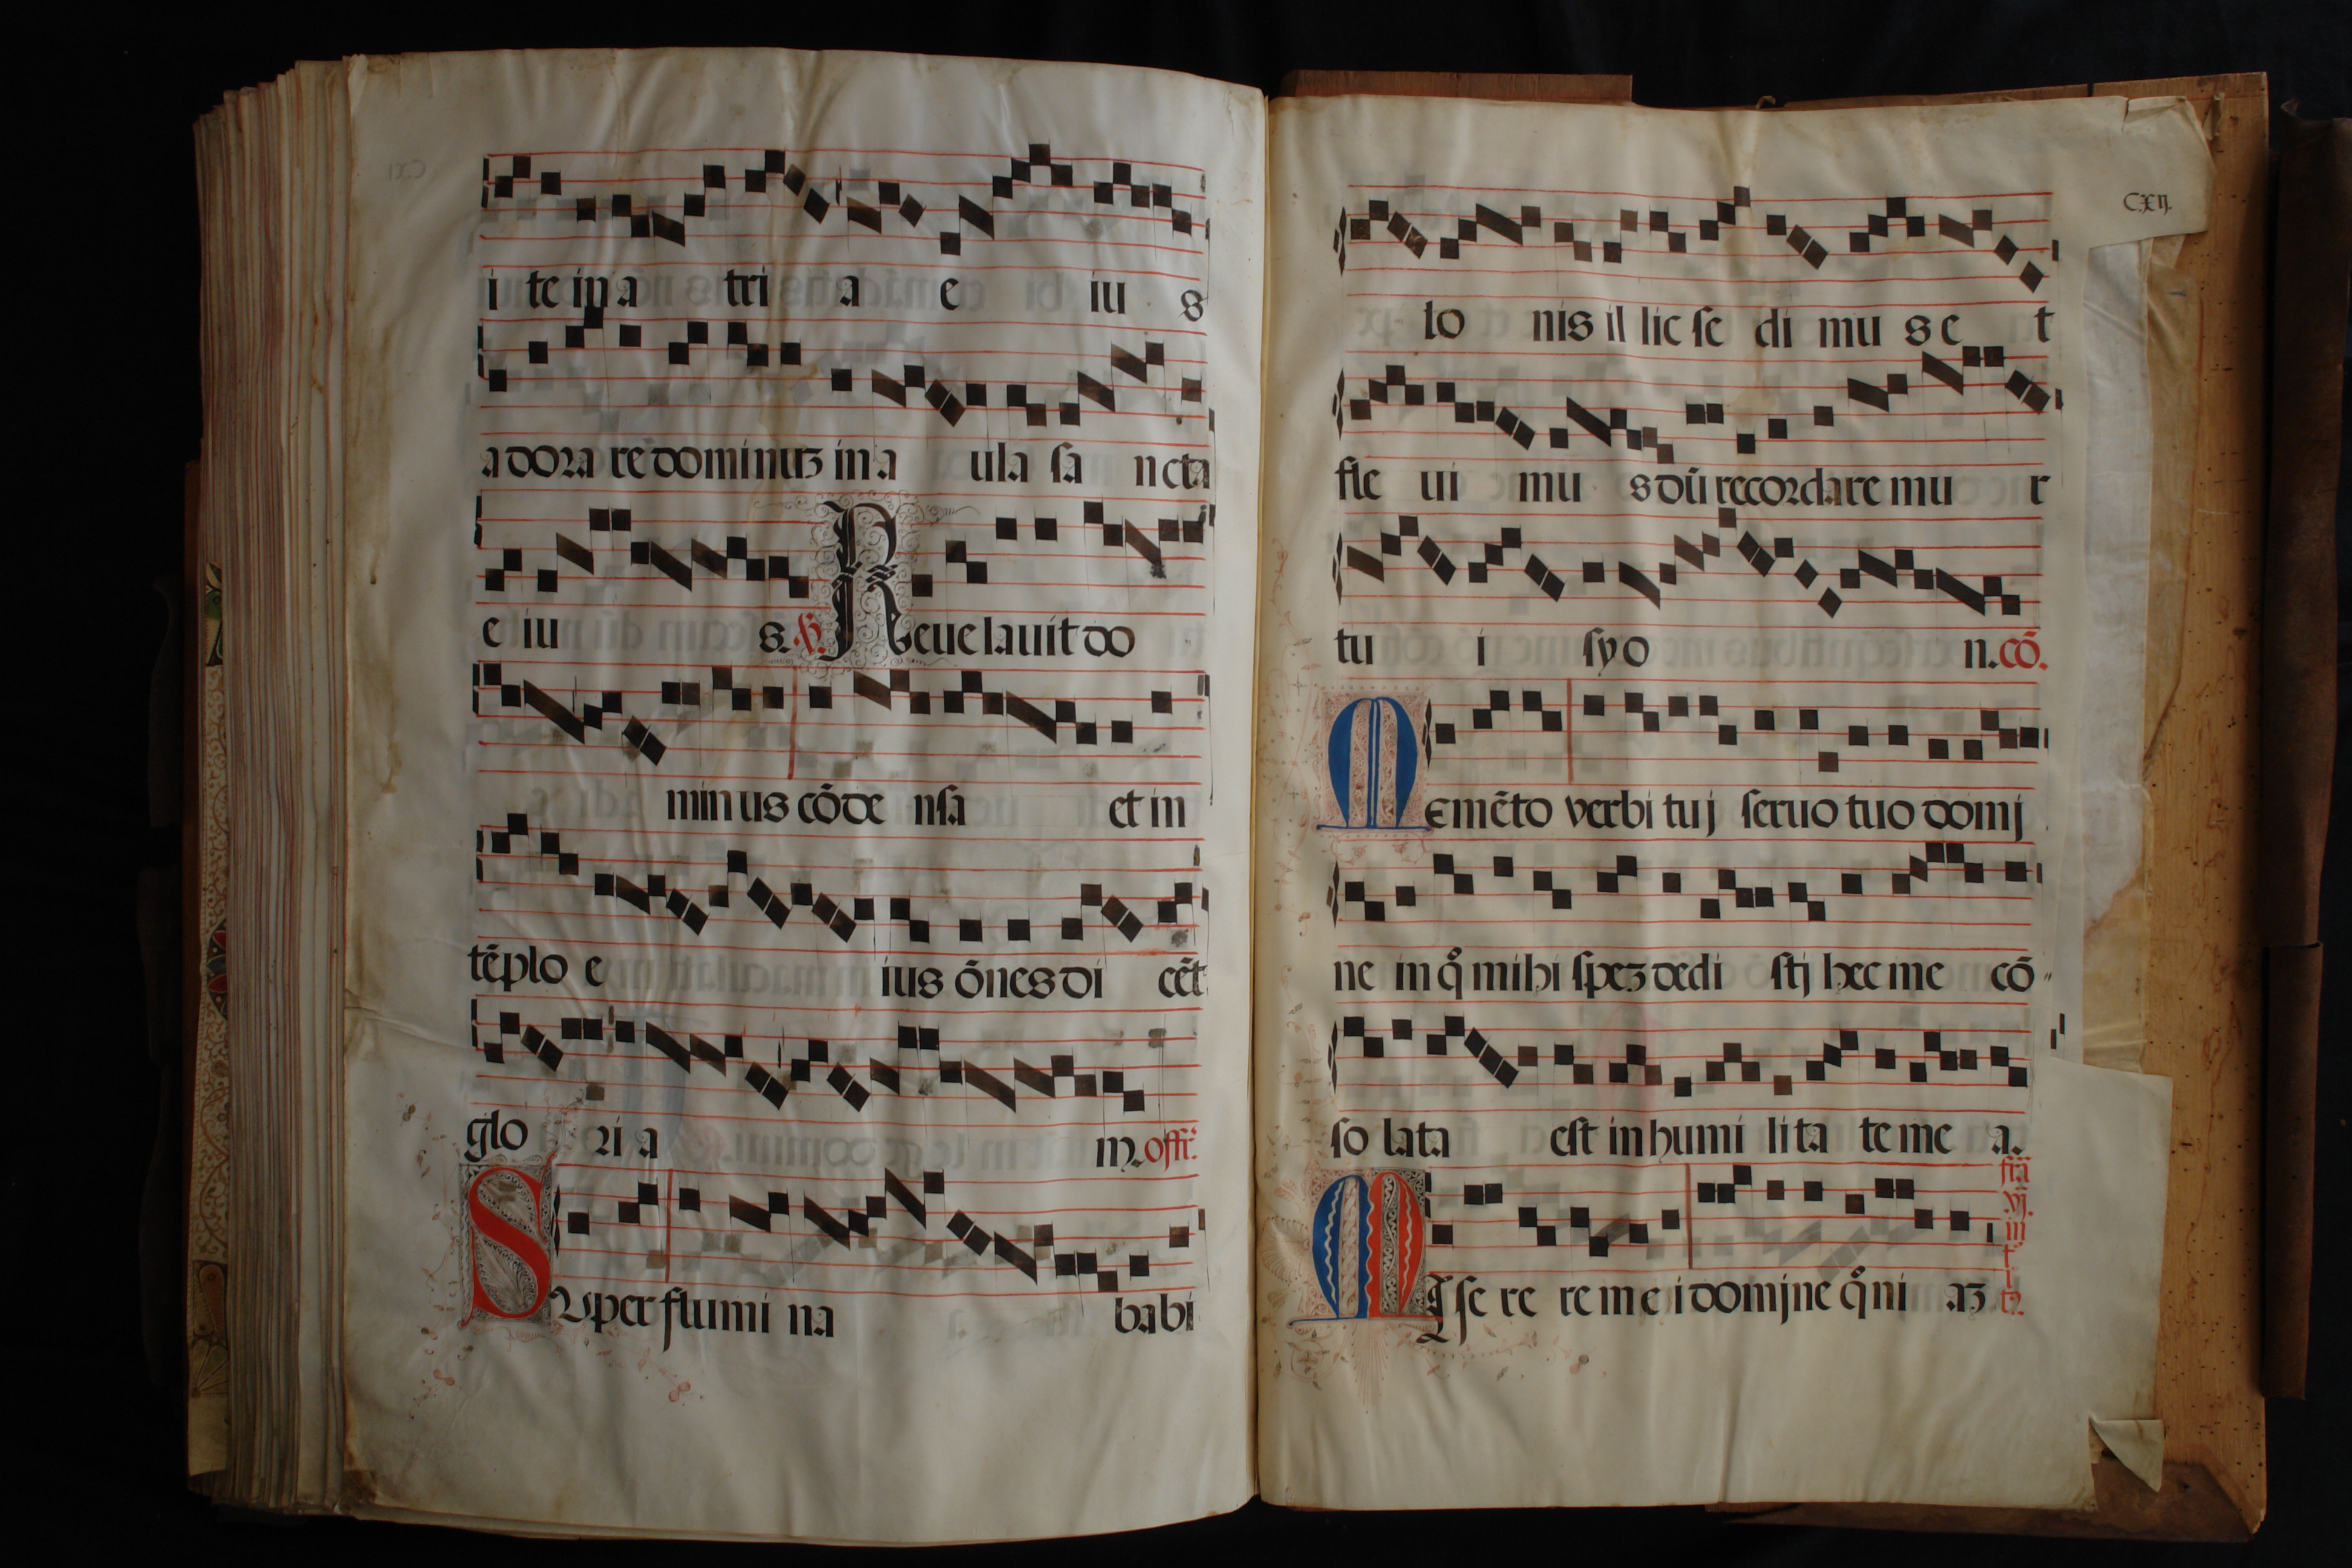 i te in a tri a e iu s
adorare dominuz in a ula sa ncta
e iu s. ℟. Reuelauit do
minus cōde nsa et in
tēplo e ius ōnes di cēt
glo ri a m. offi.
Super flumi na babi
CXII.
lo nis il lic se di mu s e t
fle ui mu s dū recordaremu r
tu i syo n. cō.
Memēto verbi tuj seruo tuo domj
ne in q̊ mihi spez dedi stj hec me cō
so lata est in humi lita te me a.
fr̄a vj. int̄r̄.
Mise re re mei domjne q̊ni az